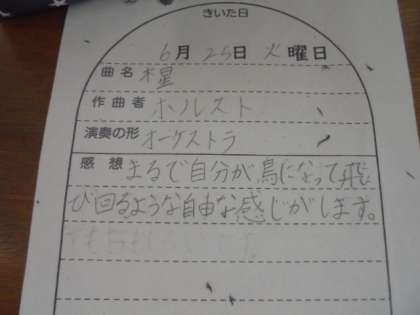 きいた日
6月25日 火曜日
曲名 木星
作曲者 ホルスト
演奏の形 オーケストラ
感想 まるで自分が鳥になって飛
び回るような自由な感じがします。